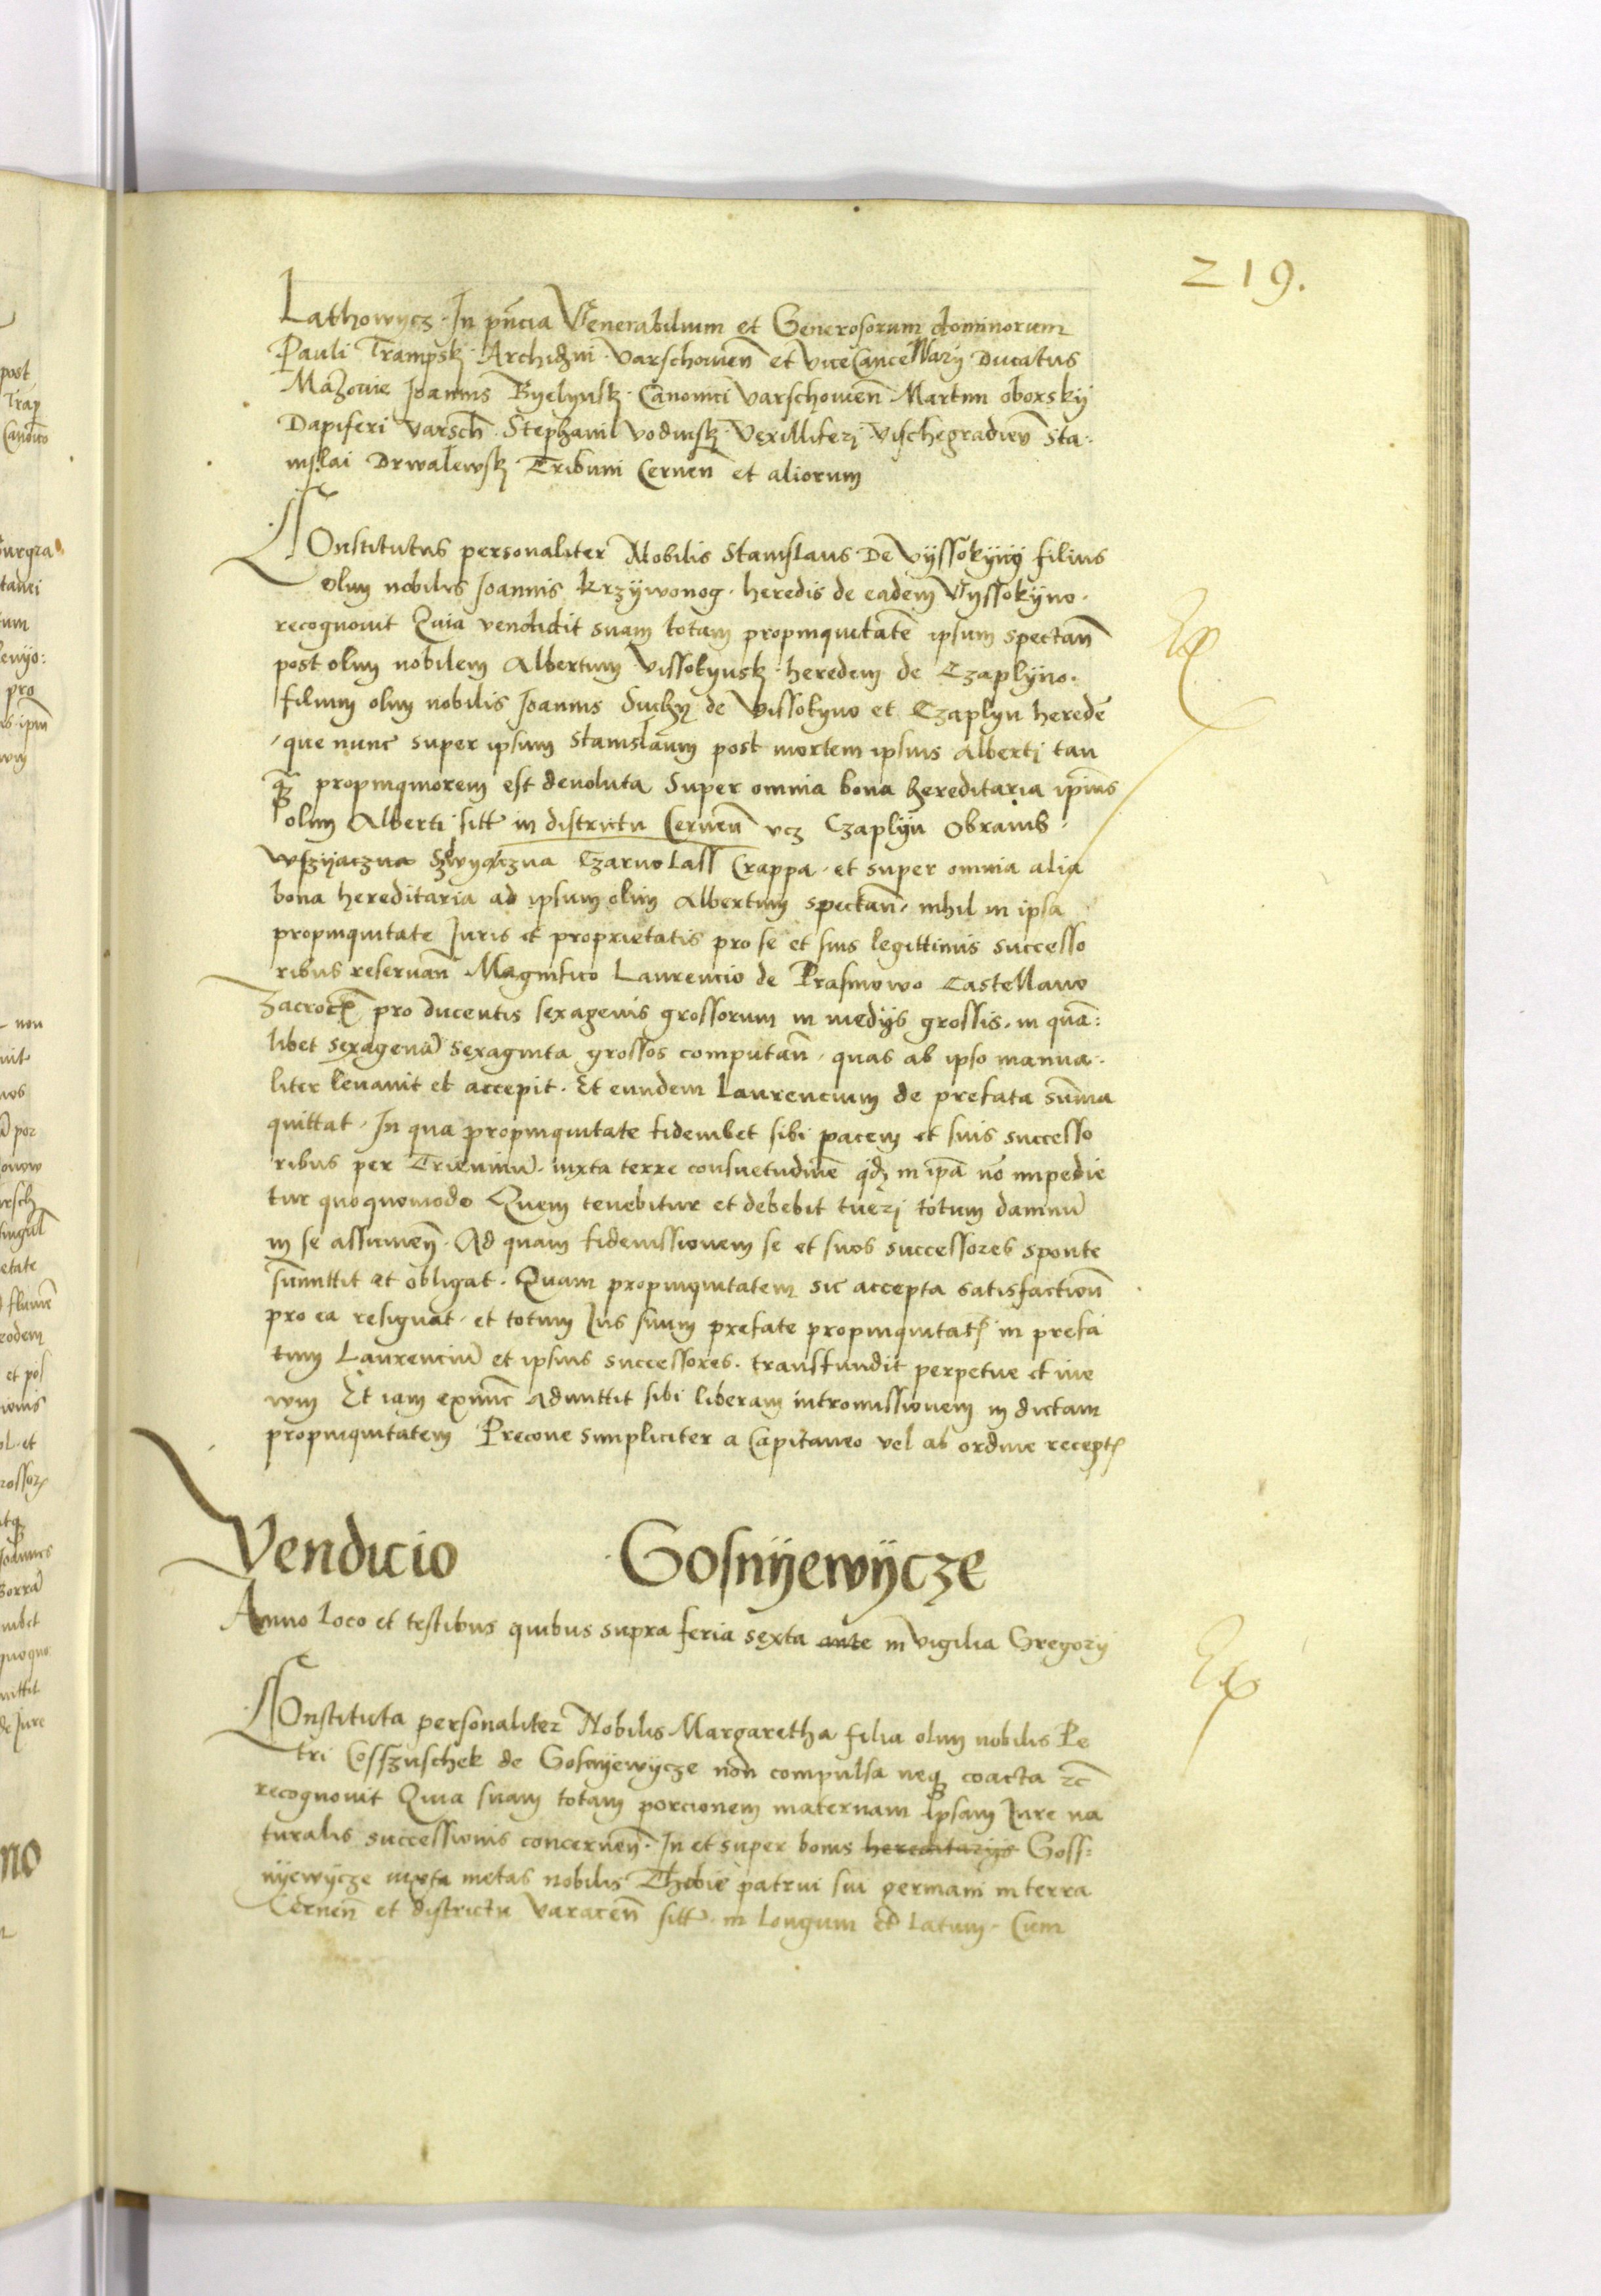 219.
Lathowycz · In pñcia Venerabilium et Generosorum dominorum
Pauli Trampskj · Archidni · Varschouien̄ et ViceCancellarÿ Ducatus
Mazouie Joannis Byelynsk · Canonici Varschouien̄ Martini oborskÿ
Dapiferi Varsch̄ · Stephani Vodinsk · Vexilliferj Vischegradien̄ Sta·
nislai Drwalewsk · Tribuni Cernen̄ et aliorum
COnstitutus personaliter Nobilis Stanislaus De Vÿssokÿno filius
olim nobilis Joannis krzÿwonog · heredis de eadem Vyssokÿno ·
recognouit Quia vendidit suam totam propinquitatē ipsum spectan̄
post olim nobilem Albertum Vissokynsk · heredem de Czaplÿno ·
filium olim nobilis Joannis Suchÿ de Vissokyno et Czaplyn heredē
que nunc super ipsum Stanislaum post mortem ipsius Albertj tan
q̄ propinquiorem est deuoluta Super omnia bona hereditaria ipīus
olim Alberti sitt̄ in districtu Cernen̄ vcz Czaplÿn Obrambˑ
Wszÿaczna Szwyaczna Czarnolass Crappa · et super omnia alia
bona hereditaria ad ipsum olim Albertum spectan̄ · nihil in ipsa
propinquitate Juris et proprietatis pro se et suis legittimis successo
ribus reseruan̄ Magnifico Laurencio de Prasmowo Castellano
Zacroc̄ pro ducentis sexagenis grossorum in medijs grossis · in quā:
libet sexagenā sexaginta grossos computan̄ · quas ab ipso manua·
liter leuauit et accepit · Et eundem Laurencium de prefata sum̄a
quittat · In qua propinquitate fideiubet sibi pacem et suis successo
ribus per Trieniū · iuxta terre consuetudinē qd in ipā nō impedie
tur quoquomodo Quem tenebitur et debebit tuerj totum damnū
in se assumen̄ · Ad quam fideiussionem se et suos successores sponte
sum̄ittit et obligat · Quam propinquitatem sic accepta satisfaction̄
pro ea resignat · et totum Jus suum prefate propinquitat in prefa
tum Laurenciū et ipsius successores · transfundit perpetue et in e
wm Et iam exnūc Admittit sibi liberam intromissionem in dictam
propinquitatem Precone simpliciter a Capitaneo vel ab ordine recept
Vendicio Gosnÿewÿcze
Anno Loco et testibus quibus supra feria sexta ante in vigilia Gregorÿ
COnstituta personaliter Nobilis Margaretha filia olim nobilis Pe
tri Cosszuschek de Gosnÿewÿcze non compulsa neq coacta zc̄
recognouit Quia suam totam porcionem maternam ipsam Jure na
turalis successionis concernen̄ · In et super bonis hereditarijs Goss:
nÿewÿcze iuxta metas nobilis Thobie patrui sui germani in terra
Cernen̄ et districtu Varacen̄ sitt̄ · in longum et latum · Cum